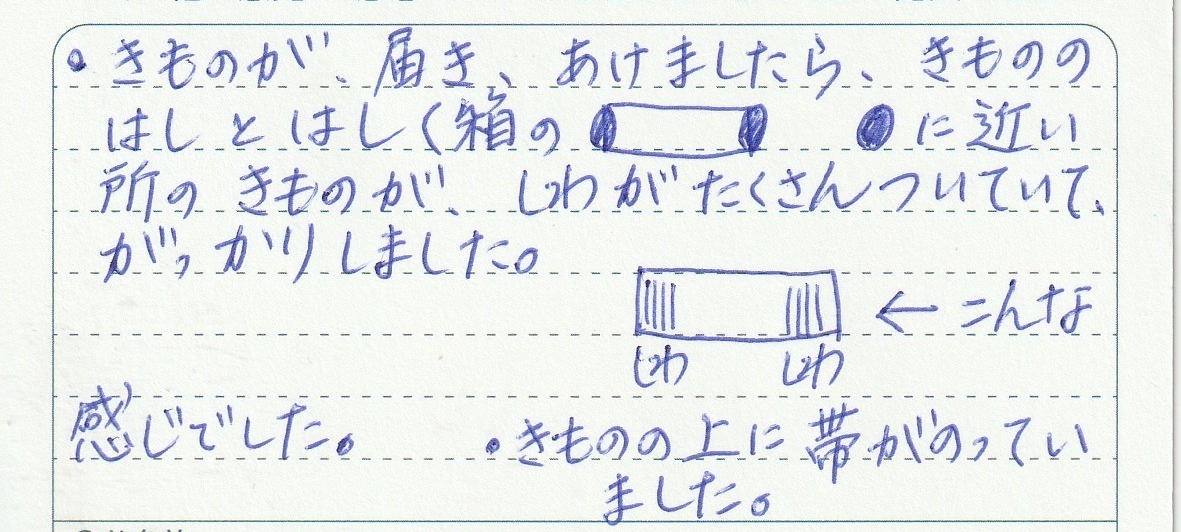 ・きものが、届き、あけましたら、きものの
はしとはしく箱の ● に近い
所のきものが、しわがたくさんついていて、
がっかりしました。
← こんな
しわ しわ
感じでした。 ・きものの上に帯がのってい
ました。